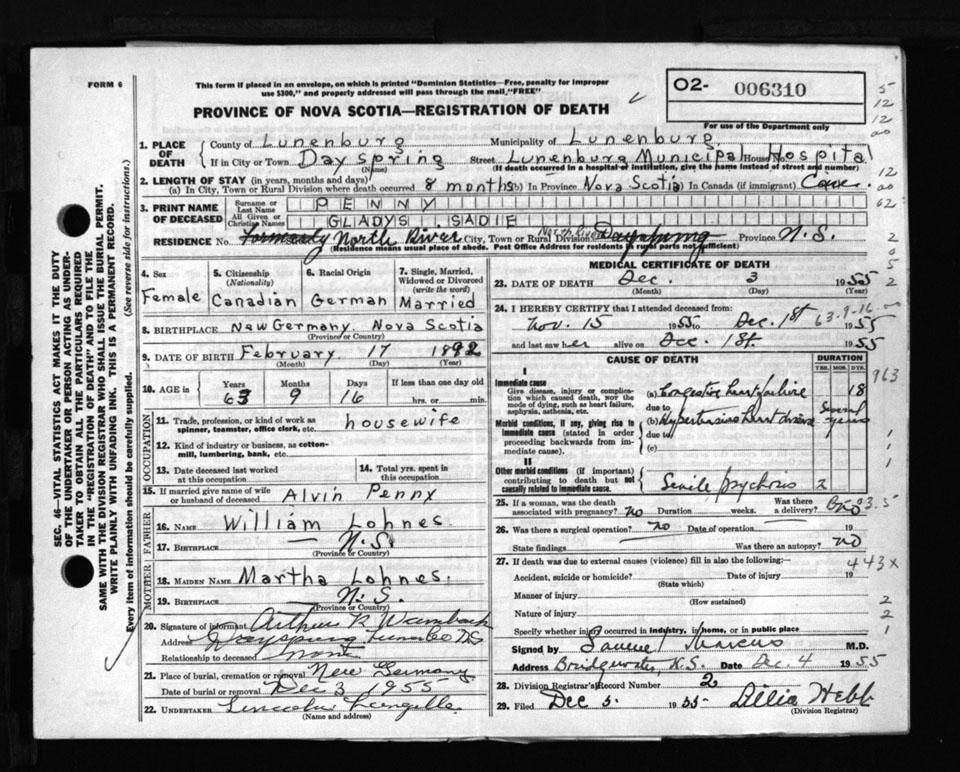 FORM 6
This form if placed in an envelope, on which is printed "Dominion Statistics—Free, penalty for improper
use $300," and properly addressed will pass through the mail, "FREE"
O2- 006310
For use of the Department only
PROVINCE OF NOVA SCOTIA—REGISTRATION OF DEATH
1. PLACE OF DEATH
County of Lunenburg Municipality of Lunenburg
If in City or Town Day spring Street Lunenburg Municipal House No. Hospital
(Name) (If death occurred in a hospital of institution, give the name instead of street and number)
2. LENGTH OF STAY (in years, months and days)
(a) In City, Town or Rural Division where death occurred 8 months (b) In Province Nova Scotia (c) In Canada (if immigrant)
3. PRINT NAME OF DECEASED
Surname or Last Name PENNY
All Given or Christian Names GLADYS SADIE
RESIDENCE No. formerly North River City, Town or Rural Division North River Dayspring Province N.S.
(Residence means usual place of abode. Post Office Address for residents in rural parts not sufficient)
4. Sex Female
5. Citizenship (Nationality) Canadian
6. Racial Origin German
7. Single, Married, Widowed or Divorced (write the word) Married
8. BIRTHPLACE New Germany Nova Scotia
(Province or Country)
9. DATE OF BIRTH February 17 1892
(Month) (Day) (Year)
10. AGE in Years 63 Months 9 Days 16 If less than one day old hrs. or min.
OCCUPATION
11. Trade, profession, or kind of work as spinner, teamster, office clerk, etc. housewife
12. Kind of industry or business, as cotton-mill, lumbering, bank, etc.
13. Date deceased last worked at this occupation
14. Total yrs. spent in this occupation
15. If married give name of wife or husband of deceased Alvin Penny
FATHER
16. NAME William Lohnes
17. BIRTHPLACE — N.S.
(Province or Country)
MOTHER
18. MAIDEN NAME Martha Lohnes.
19. BIRTHPLACE N.S.
(Province or Country)
20. Signature of informant Arthur R Wambach
Address Dayspring Lunen Co N.S
Relationship to deceased none
21. Place of burial, cremation or removal New Germany
Date of burial or removal Dec 3 1955
22. UNDERTAKER Lincoln
(Name and address)
MEDICAL CERTIFICATE OF DEATH
23. DATE OF DEATH Dec. 3 1955
(Month) (Day) (Year)
24. I HEREBY CERTIFY that I attended deceased from:
Nov. 15 1955 to Dec. 1st 1955
63-9-16
and last saw her alive on Dec. 1st. 1955
CAUSE OF DEATH
DURATION
YRS. MOS. DYS.
I
Immediate cause
Give disease, injury or complication which caused death, not the mode of dying, such as heart failure, asphyxia, asthenia, etc.
(a) Congestive heart failure 18
due to
Morbid conditions, if any, giving rise to immediate cause (stated in order proceeding backwards from immediate cause).
(b) Hypertensive heart disease Several years
due to
(c)
II
Other morbid conditions (if important) contributing to death but not causally related to immediate cause.
Senile psychosis 2
25. If a woman, was the death associated with pregnancy? no Duration weeks. Was there a delivery? no
26. Was there a surgical operation? no Date of operation 19
State findings Was there an autopsy? no
27. If death was due to external causes (violence) fill in also the following:—
Accident, suicide or homicide? Date of injury 19
(State which)
Manner of injury
(How sustained)
Nature of injury
Specify whether injury occurred in industry, in home, or in public place
Signed by Samuel Marcus M.D.
Address Bridgewater, N.S. Date Dec. 4 1955
28. Division Registrar's Record Number 2
29. Filed Dec 5. 1955 Lillia Webb
(Division Registrar)
SEC. 46—VITAL STATISTICS ACT MAKES IT THE DUTY
OF THE UNDERTAKER OR PERSON ACTING AS UNDER-
TAKER TO OBTAIN ALL THE PARTICULARS REQUIRED
IN THE "REGISTRATION OF DEATH" AND TO FILE THE
SAME WITH THE DIVISION REGISTRAR WHO SHALL ISSUE THE BURIAL PERMIT.
WRITE PLAINLY WITH UNFADING INK. THIS IS A PERMANENT RECORD.
Every item of information should be carefully supplied. (See reverse side for instructions.)
5
12
12
00
12
00
62
2
0
5
2
00
963
1
1
1
03.5
443x
2
2
1